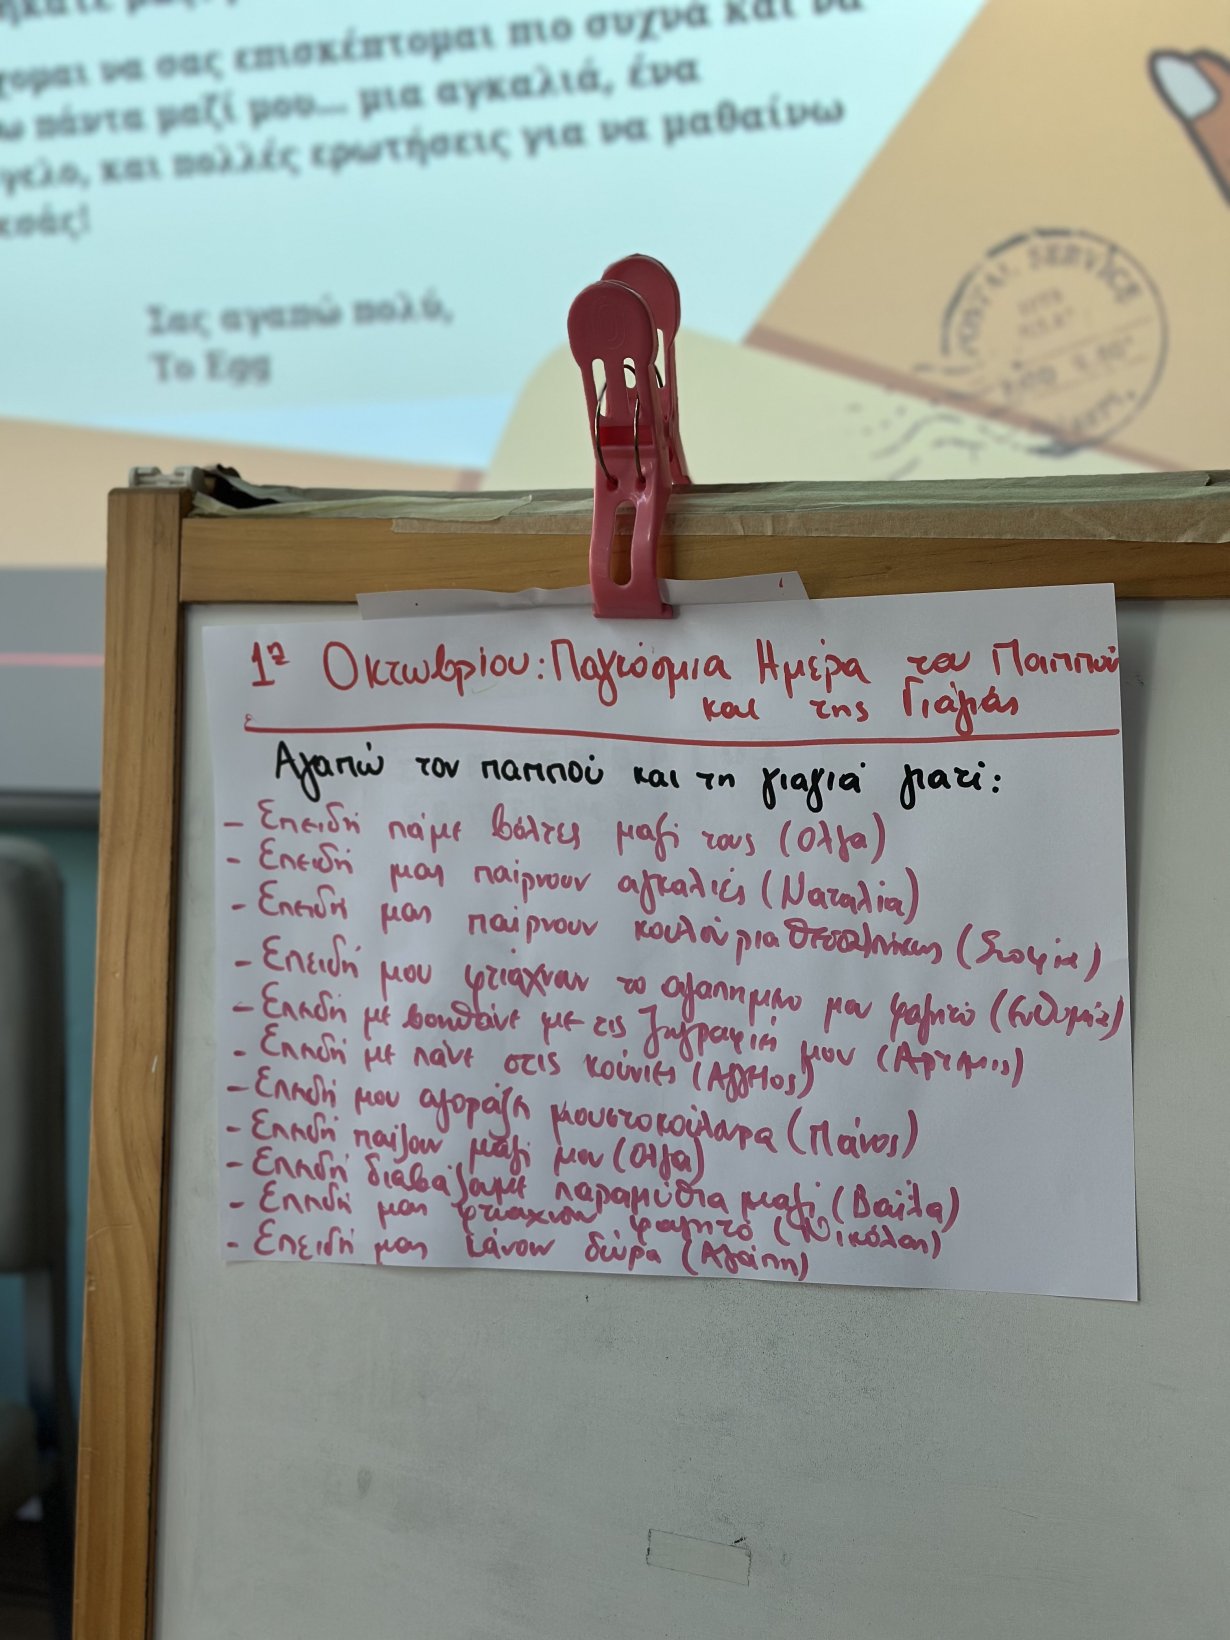 μαζί
να σας επισκέπτομαι πιο συχνά και να
πάντα μαζί μου... μια αγκαλιά, ένα
γελο, και πολλές ερωτήσεις για να μαθαίνω
Σας αγαπώ πολύ,
Το Egg
POSTAL SERVICE
1η Οκτωβρίου: Παγκόσμια Ημέρα του Παππού
και της Γιαγιάς
Αγαπώ τον παππού και τη γιαγιά γιατί:
- Επειδή πάμε βόλτες μαζί τους (Όλγα)
- Επειδή μας παίρνουν αγκαλιές (Ναταλία)
- Επειδή μας παίρνουν κουλούρια Θεσσαλονίκης (Σοφία)
- Επειδή μου φτιάχναν το αγαπημένο μου φαγητό (Ευθυμία)
- Επειδή με βοηθάνε με τις ζωγραφιές μου (Άρτεμις)
- Επειδή με πάνε στις κούνιες (Άγγελος)
- Επειδή μου αγοράζει μουστοκούλουρα (Πάνος)
- Επειδή παίζουν μαζί μου (Όλγα)
- Επειδή διαβάζουμε παραμύθια μαζί (Βαΐλα)
- Επειδή μας φτιάχνουν φαγητό (Νικόλας)
- Επειδή μας κάνουν δώρα (Αγάπη)